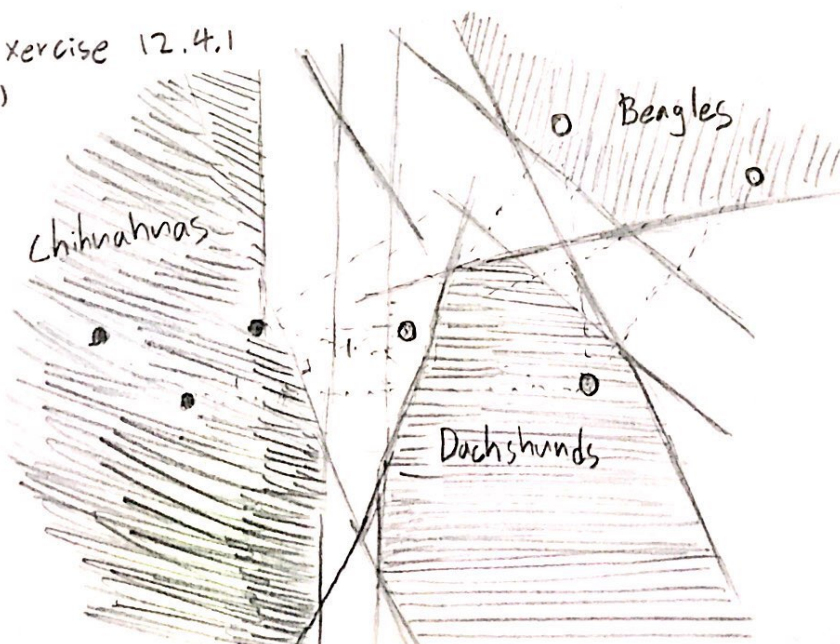 xercise 12.4.1
)
Beagles
Chihuahuas
Dachshunds